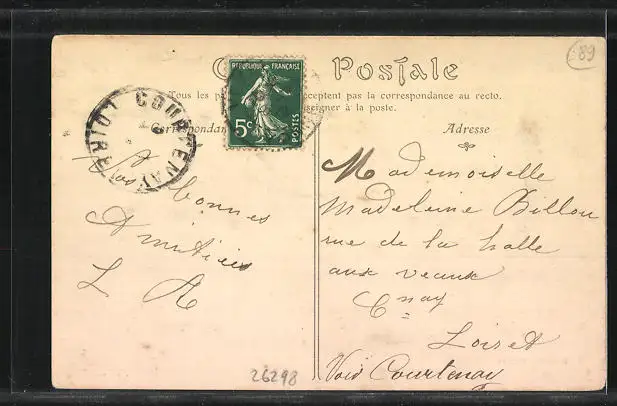 89
Postale
RÉPUBLIQUE FRANÇAISE
5c POSTES
Tous les pa acceptent pas la correspondance au recto.
seigner à la poste.
COURTENAY
LOIRET
Correspondan
Adresse
bonnes
Amitiés
L A
Mademoiselle
Madeleine Billou
rue de la halle
aux veaux
Loiret
Voie Courtenay
26298